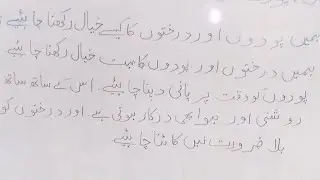 ہمیں پودوں اور درختوں کا کیسے خیال رکھنا چاہئیے
ہمیں درختوں اور پودوں کا بہت خیال رکھنا چاہئیے
پودوں کو وقت پر پانی دینا چاہئیے. اس کے ساتھ ساتھ
روشنی اور ہوا بھی درکار ہوتی ہے. اور درختوں کو
بلا ضرورت نہیں کاٹنا چاہئیے